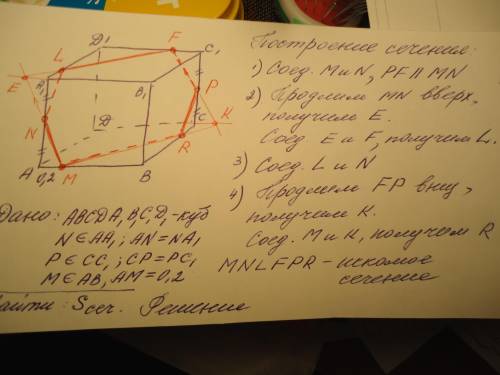 D₁
F
C₁
L
E
A₁
B₁
P
N
D
C
K
R
A 0,2 M
B
Построение сечения:
1) Соед. M и N, PF II MN
2) Продлим MN вверх,
получим E.
Соед. E и F, получим L.
3) Соед. L и N
4) Продлим FP вниз,
получим K.
Соед. M и K, получим R
MNLFPR - искомое
сечение
Дано: ABCDA₁B₁C₁D₁ - куб
N ∈ AA₁; AN = NA₁
P ∈ CC₁; CP = PC₁
M ∈ AB, AM = 0,2
Найти: Sсеч. Решение